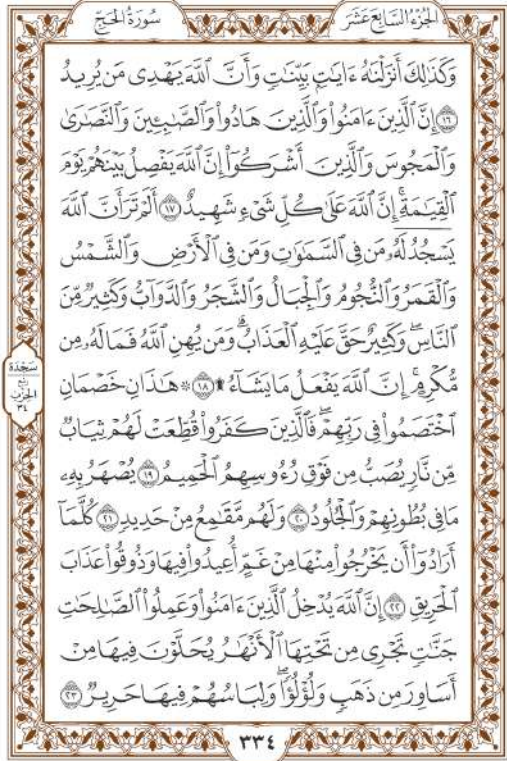 الجُزْءُ السَّابِعَ عَشَرَ
سُورَةُ الحَجِّ
وَكَذَٰلِكَ أَنزَلْنَٰهُ ءَايَٰتِۭ بَيِّنَٰتٖ وَأَنَّ ٱللَّهَ يَهْدِى مَن يُرِيدُ
١٦ إِنَّ ٱلَّذِينَ ءَامَنُوا۟ وَٱلَّذِينَ هَادُوا۟ وَٱلصَّٰبِـِٔينَ وَٱلنَّصَٰرَىٰ
وَٱلْمَجُوسَ وَٱلَّذِينَ أَشْرَكُوٓا۟ إِنَّ ٱللَّهَ يَفْصِلُ بَيْنَهُمْ يَوْمَ
ٱلْقِيَٰمَةِۚ إِنَّ ٱللَّهَ عَلَىٰ كُلِّ شَىْءٖ شَهِيدٌ ١٧ أَلَمْ تَرَ أَنَّ ٱللَّهَ
يَسْجُدُ لَهُۥ مَن فِى ٱلسَّمَٰوَٰتِ وَمَن فِى ٱلْأَرْضِ وَٱلشَّمْسُ
وَٱلْقَمَرُ وَٱلنُّجُومُ وَٱلْجِبَالُ وَٱلشَّجَرُ وَٱلدَّوَآبُّ وَكَثِيرٌ مِّنَ
ٱلنَّاسِۖ وَكَثِيرٌ حَقَّ عَلَيْهِ ٱلْعَذَابُۗ وَمَن يُهِنِ ٱللَّهُ فَمَا لَهُۥ مِن
مُّكْرِمٍۚ إِنَّ ٱللَّهَ يَفْعَلُ مَا يَشَآءُ ۩ ١٨ ۞ هَٰذَانِ خَصْمَانِ
ٱخْتَصَمُوا۟ فِى رَبِّهِمْۖ فَٱلَّذِينَ كَفَرُوا۟ قُطِّعَتْ لَهُمْ ثِيَابٌ
مِّن نَّارٍ يُصَبُّ مِن فَوْقِ رُءُوسِهِمُ ٱلْحَمِيمُ ١٩ يُصْهَرُ بِهِۦ
مَا فِى بُطُونِهِمْ وَٱلْجُلُودُ ٢٠ وَلَهُم مَّقَٰمِعُ مِنْ حَدِيدٍ ٢١ كُلَّمَآ
أَرَادُوٓا۟ أَن يَخْرُجُوا۟ مِنْهَا مِنْ غَمٍّ أُعِيدُوا۟ فِيهَا وَذُوقُوا۟ عَذَابَ
ٱلْحَرِيقِ ٢٢ إِنَّ ٱللَّهَ يُدْخِلُ ٱلَّذِينَ ءَامَنُوا۟ وَعَمِلُوا۟ ٱلصَّٰلِحَٰتِ
جَنَّٰتٍ تَجْرِى مِن تَحْتِهَا ٱلْأَنْهَٰرُ يُحَلَّوْنَ فِيهَا مِنْ
أَسَاوِرَ مِن ذَهَبٍ وَلُؤْلُؤًاۖ وَلِبَاسُهُمْ فِيهَا حَرِيرٌ ٢٣
سَجْدَة
رُبْع
الحِزْب
٣٤
٣٣٤